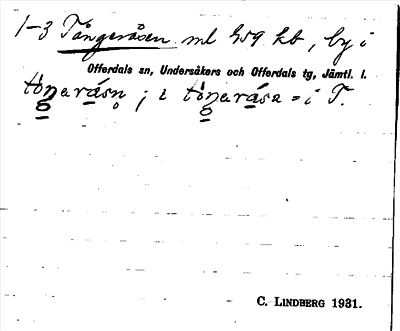 1-3 Tångeråsen ml h/59 kb, by i
Offerdals sn, Undersåkers och Offerdals tg, Jämtl. l.
; i = i T.
C. LINDBERG 1931.